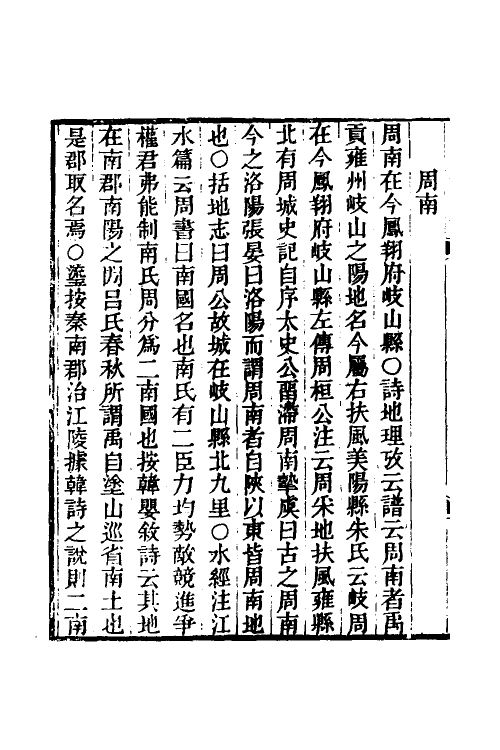 周南
周南在今鳳翔府岐山縣○詩地理攷云譜云周南者禹
貢雍州岐山之陽地名今屬右扶風美陽縣朱氏云岐周
在今鳳翔府岐山縣左傳周桓公注云周采地扶風雍縣
北有周城史記自序太史公畱滯周南摯虞曰古之周南
今之洛陽張晏曰洛陽而謂周南者自陝以東皆周南地
也○括地志曰周公故城在岐山縣北九里○水經注江
水篇云周書曰南國名也南氏有二臣力均勢敵競進爭
權君弗能制南氏周分爲二南國也按韓嬰敘詩云其地
在南郡南陽之閒吕氏春秋所謂禹自塗山巡省南土也
是郡取名焉○鎏按秦南郡治江陵據韓詩之說則二南